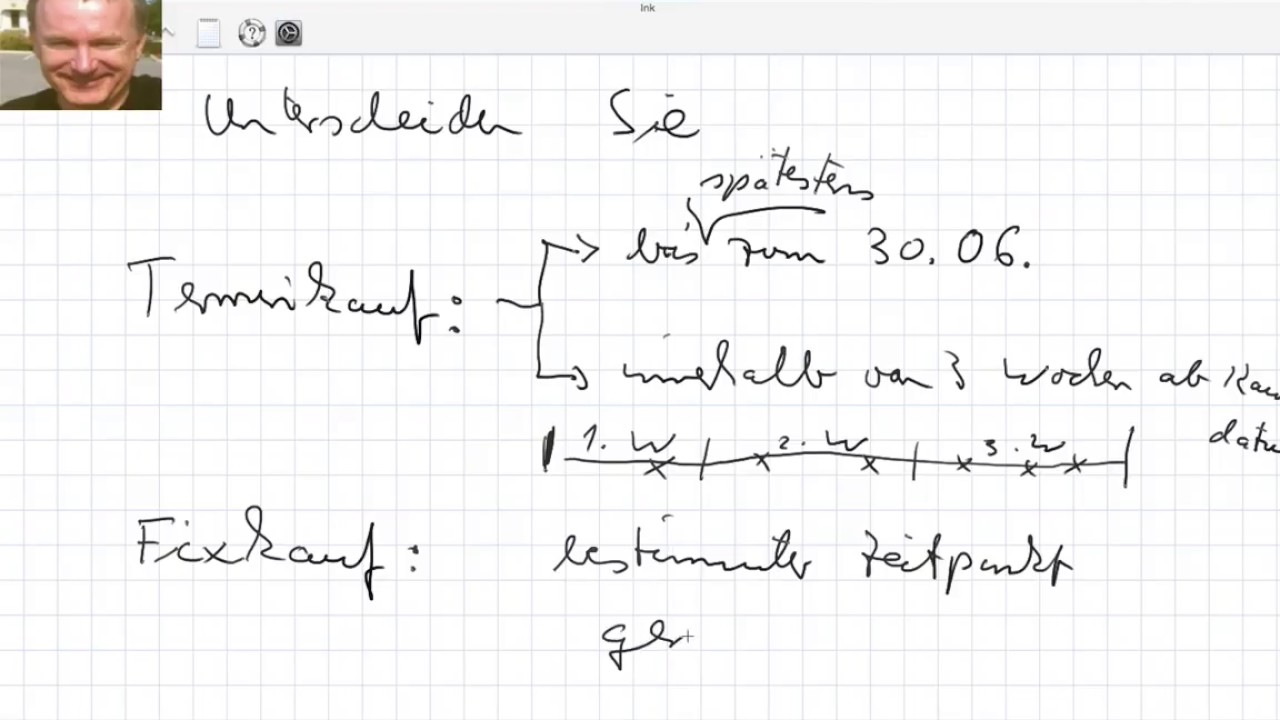 Ink
Unterscheiden Sie
spätestens
bis zum 30.06.
Terminkauf:
innerhalb von 3 Wochen ab Kau
datu
1. W 2. W 3. W
Fixkauf: bestimmter Zeitpunkt